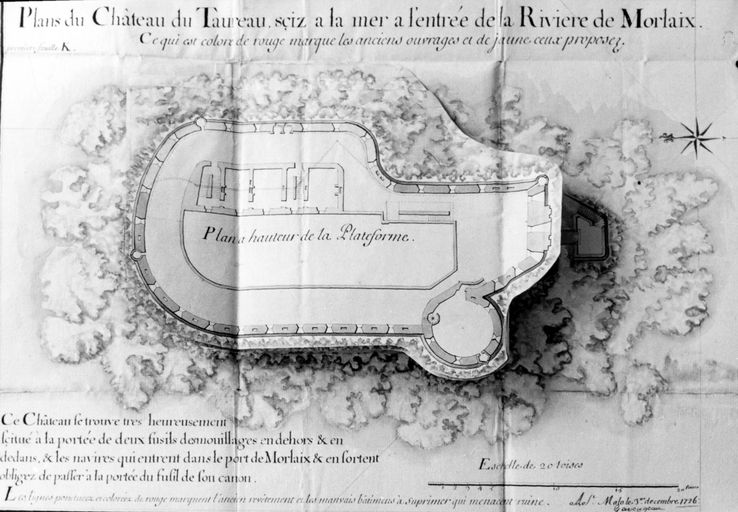 Plans du Château du Taureau, sçiz a la mer a l'entrée de la Riviere de Morlaix.
Ce qui est coloré de rouge marque les anciens ouvrages et de jaune ceux proposez.
premiere feuille K.
Plan a hauteur de la Plateforme.
Ce Château se trouve tres heureusement
sçitué à la portée de deux fusils des mouillages en dehors & en
dedans, & les navires qui entrent dans le port de Morlaix & en sortent
obligez de passer à la portée du fusil de son canon.
Les lignes ponctuées et colorées de rouge marquent l'ancien revêtement et les mauvais bâtimens à suprimer qui menacent ruine.
Eschelle de 20 toises
A St. Malo le 3e. decembre 1726.